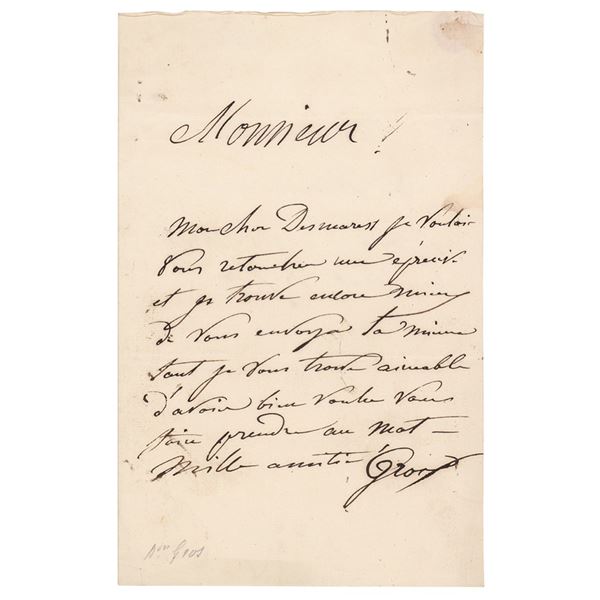 Monsieur
Mon cher Desmarest je voulais
vous retoucher une épreuve
et je trouve encore mieux
de vous envoyer la mienne
tant je vous trouve aimable
d'avoir bien voulu vous
faire prendre au mot -
Mille amitiés Gros
Bon Gros